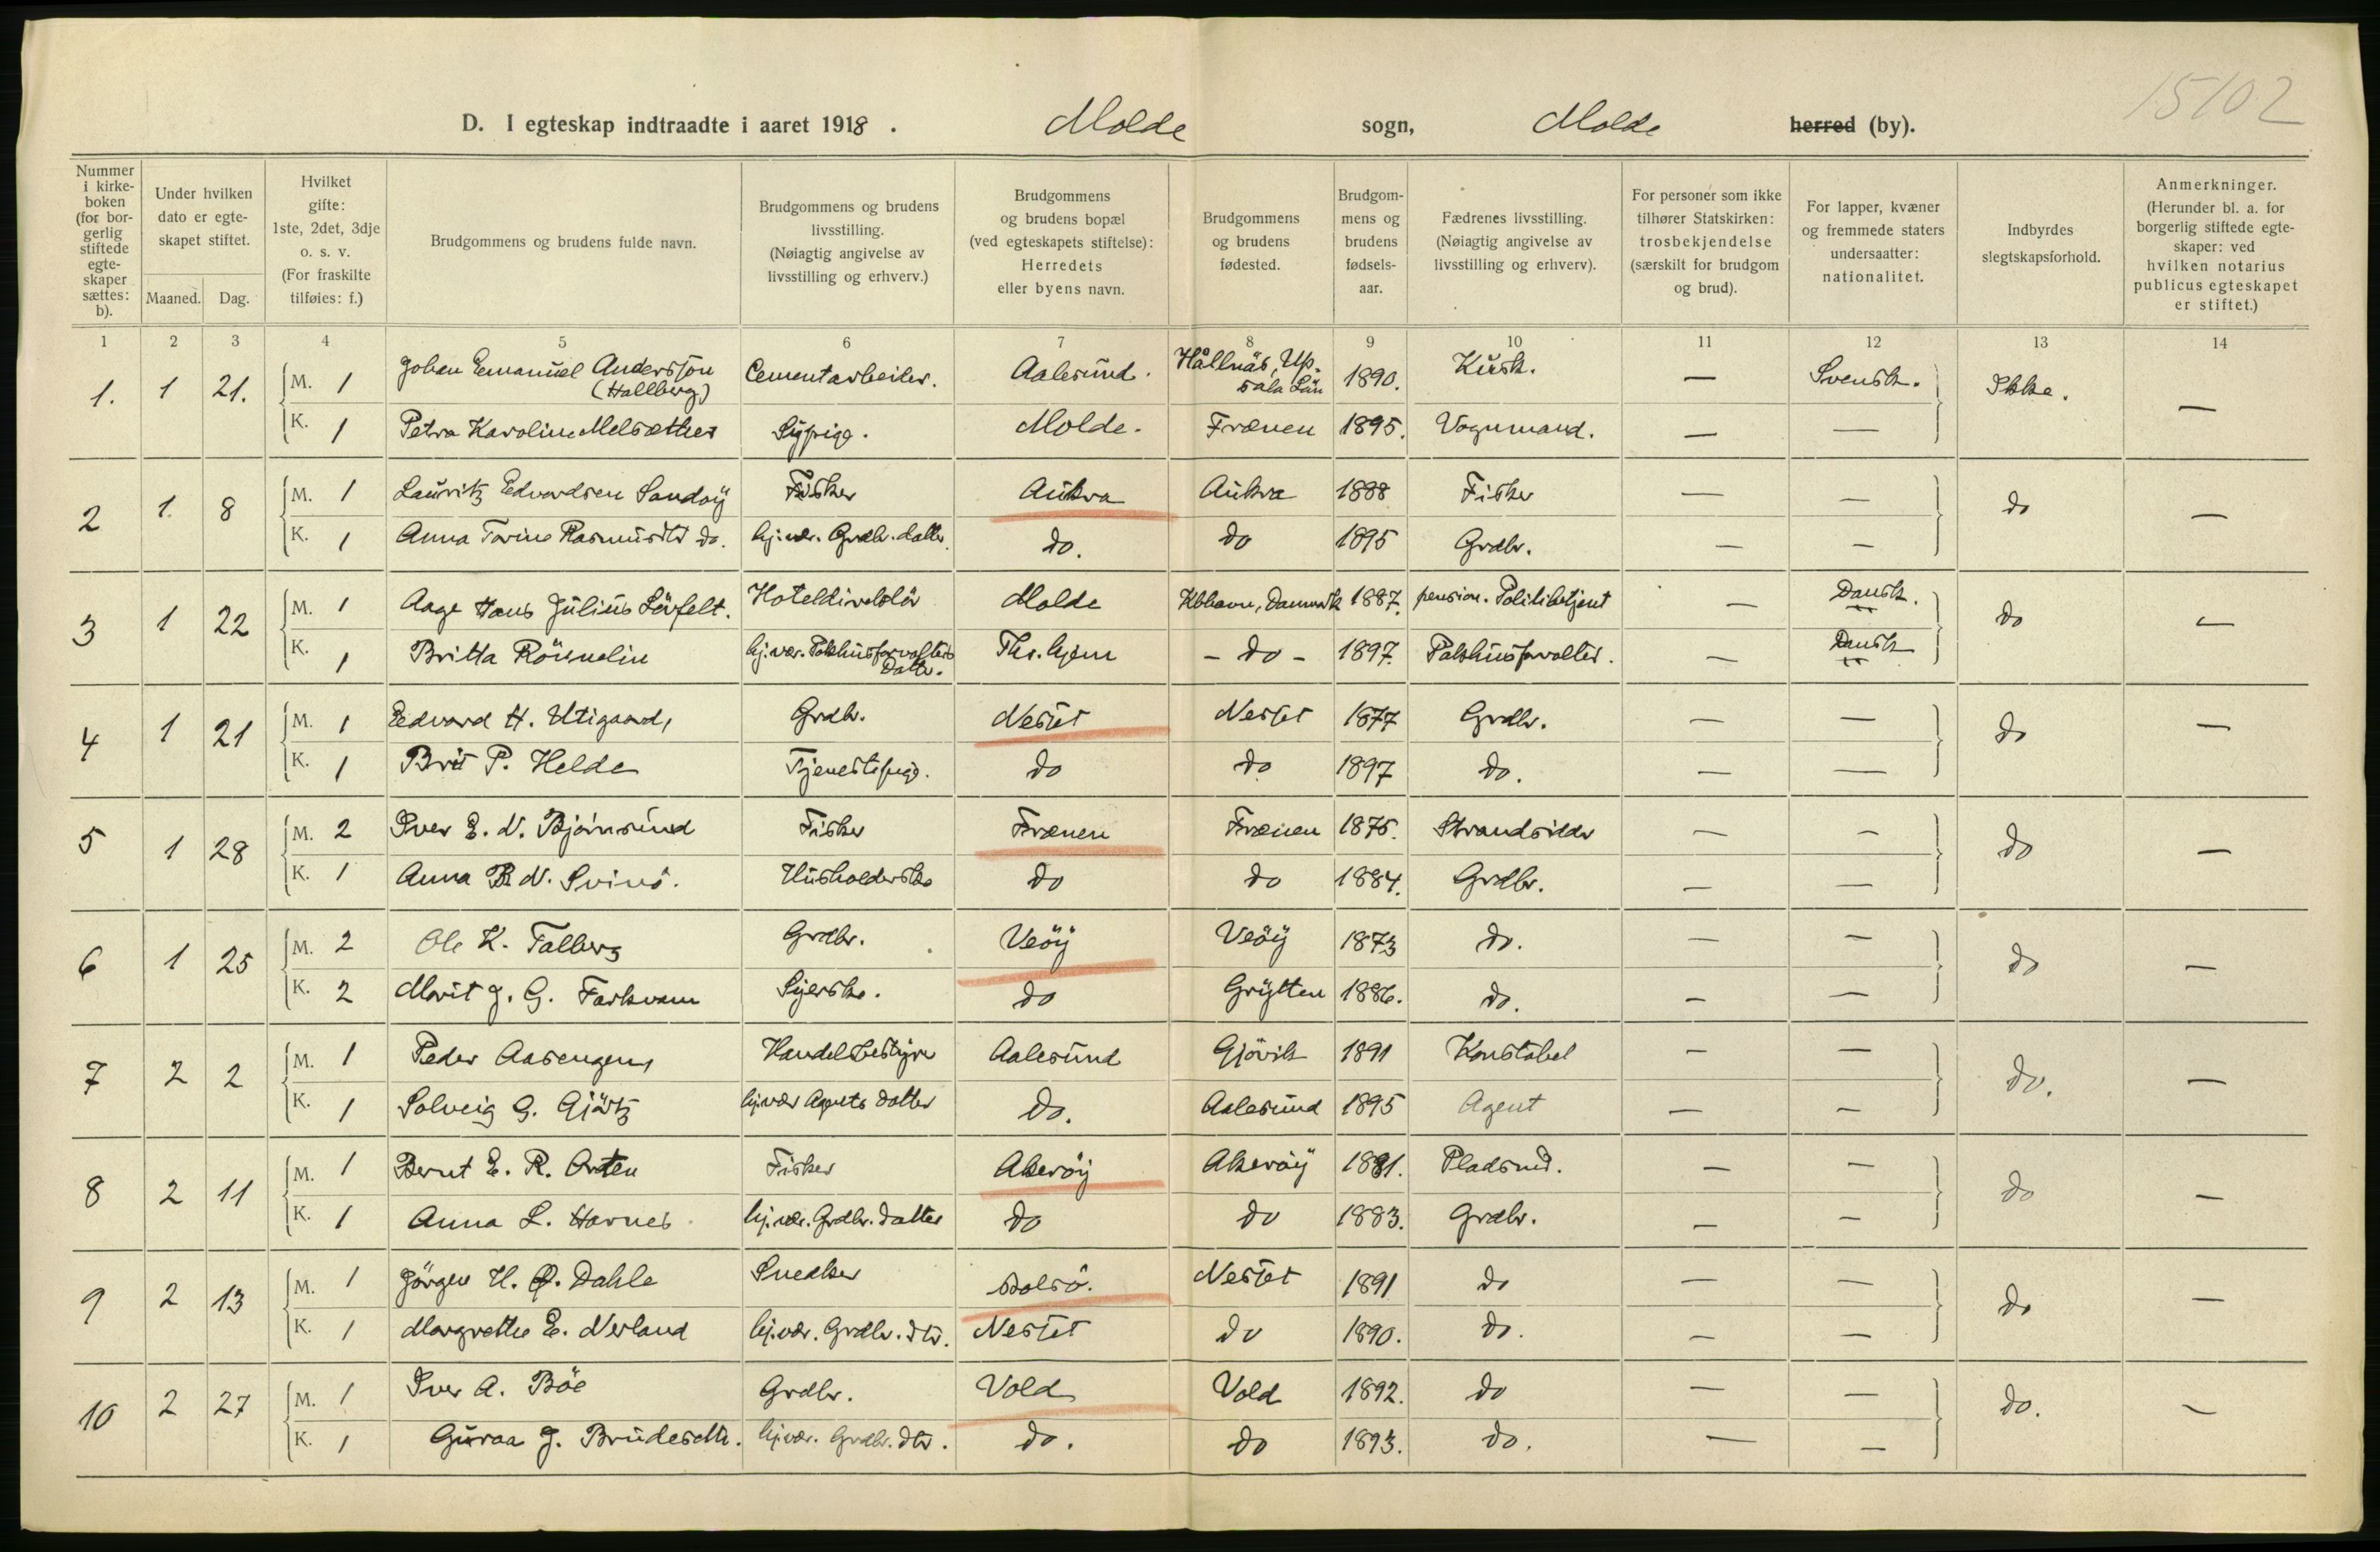 15/02
D. I egteskap indtraadte i aaret 1918 . Molde sogn, Molde herred (by).
Nummer i kirke-boken (for bor-gerlig stiftede egte-skaper sættes: b).
Under hvilken dato er egte-skapet stiftet.
Maaned. Dag.
Hvilket gifte: 1ste, 2det, 3dje o. s. v. (For fraskilte tilføies: f.)
Brudgommens og brudens fulde navn.
Brudgommens og brudens livsstilling. (Nøiagtig angivelse av livsstilling og erhverv.)
Brudgommens og brudens bopæl (ved egteskapets stiftelse): Herredets eller byens navn.
Brudgommens og brudens fødested.
Brudgom-mens og brudens fødsels-aar.
Fædrenes livsstilling. (Nøiagtig angivelse av livsstilling og erhverv).
For personer som ikke tilhører Statskirken: trosbekjendelse (særskilt for brudgom og brud).
For lapper, kvæner og fremmede staters undersaatter: nationalitet.
Indbyrdes slegtskapsforhold.
Anmerkninger. (Herunder bl. a. for borgerlig stiftede egte-skaper: ved hvilken notarius publicus egteskapet er stiftet.)
1 2 3 4 5 6 7 8 9 10 11 12 13 14
1. 1 21. M. 1 Johan Emanuel Andersson (Hallberg) Cementarbeider. Aalesund. Hållnäs, Upsala Län 1890. Kusk. — Svensk. Ikke. —
K. 1 Petra Karoline Melsæther Sypige. Molde. Frænen 1895. Vognmand. — —
2 1. 8 M. 1 Lauritz Edvardsen Sandøy Fisker Aukra Aukra 1888 Fisker — — do —
K. 1 Anna Tarine Rasmusdtr do. hj.vær. Grdbr. datter. do. do 1895 Grdbr. — —
3 1 22 M. 1 Aage Hans Julius Lövfelt. Hoteldirektör Molde Kbhavn, Danmark 1887. pension. Politibetjent — Dansk. do —
K. 1 Britta Rönnelin hj.vær. Pakhusforvalters Datter. Ths. hjem - do - 1897. Pakhusforvalter. — Dansk
4 1 21 M. 1 Eedvard H. Utigaard, Grdbr. Nesset Nesset 1877 Grdbr. — — do —
K. 1 Brit P. Helde Tjenestepige. do do 1897 do. — —
5 1 28 M. 2 Iver E. N. Bjørnsund Fisker Frænen Frænen 1875. Strandsidder — — do —
K. 1 Anna B. N. Svinø. Husholderske do do 1884. Grdbr. — —
6 1 25 M. 2 Ole K. Talberg Grdbr. Veöy Veöy 1873 do. — — do —
K. 2 Marit J. G. Farkvam Syerske. do Grytten 1886. do. — —
7 2 2 M. 1 Peder Aasengen, Handelsbestyrer Aalesund Gjövik 1891 Konstabel — — do. —
K. 1 Solveig G. Gjärtz hj.vær Agents datter do. Aalesund 1895 Agent — —
8 2 11 M. 1 Bernt E. R. Orten Fisker Akeröy Akeröy 1881. Pladsmd. — — do —
K. 1 Anna L. Harnes. hj.vær. Grdbr. datter do do 1883. Grdbr. — —
9 2 13 M. 1 Jörgen H. O. Dahle Snedker Bolsö. Nesset 1891 do — — do —
K. 1 Margrethe E. Nerland hj.vær. Grdbr. dtr. Nesset do 1890. do. — —
10 2 27 M. 1 Iver A. Böe Grdbr. Vold Vold 1892. do — — do. —
K. 1 Guraa J. Brudeseth. hj.vær. Grdbr. dtr. do. do 1893. do. — —